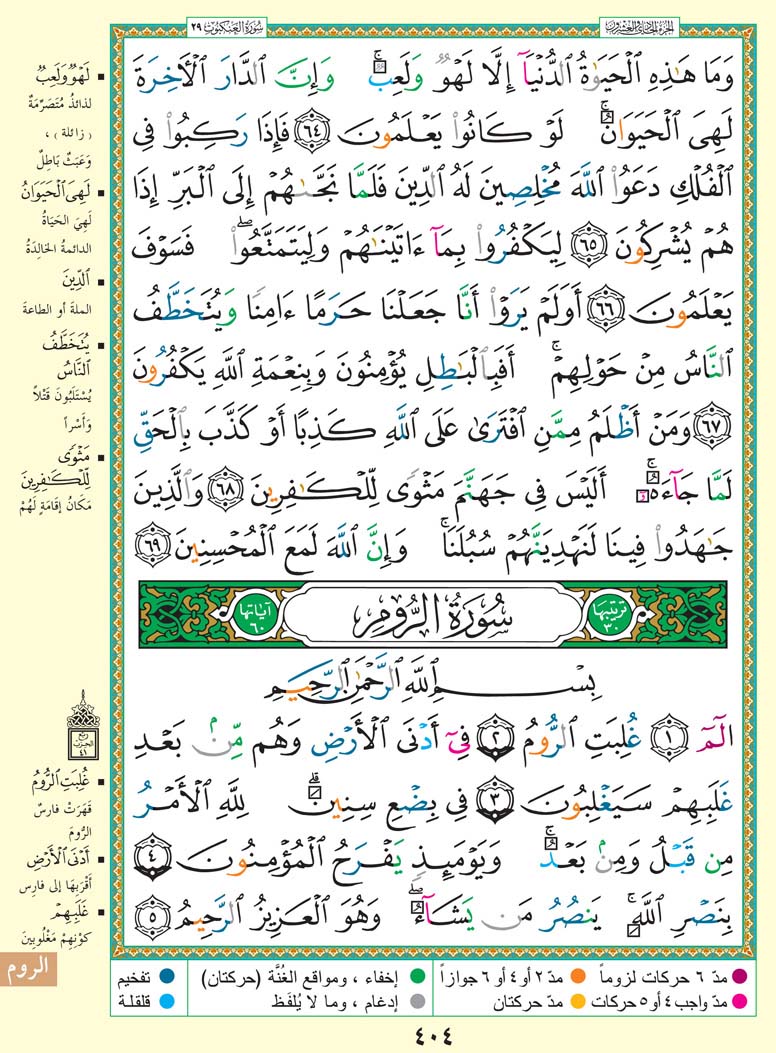 سُورَةُ العَنكبُوت ٢٩
الجُزءُ الحَادِي وَالعِشرُون
وَمَا هَٰذِهِ الْحَيَوٰةُ الدُّنْيَآ إِلَّا لَهْوٌ وَلَعِبٌ ۚ وَإِنَّ الدَّارَ الْأَخِرَةَ
لَهِىَ الْحَيَوَانُ ۚ لَوْ كَانُوا۟ يَعْلَمُونَ ٦٤ فَإِذَا رَكِبُوا۟ فِى
الْفُلْكِ دَعَوُا۟ اللَّهَ مُخْلِصِينَ لَهُ الدِّينَ فَلَمَّا نَجَّىٰهُمْ إِلَى الْبَرِّ إِذَا
هُمْ يُشْرِكُونَ ٦٥ لِيَكْفُرُوا۟ بِمَآ ءَاتَيْنَٰهُمْ وَلِيَتَمَتَّعُوا۟ ۖ فَسَوْفَ
يَعْلَمُونَ ٦٦ أَوَلَمْ يَرَوْا۟ أَنَّا جَعَلْنَا حَرَمًا ءَامِنًا وَيُتَخَطَّفُ
النَّاسُ مِنْ حَوْلِهِمْ ۚ أَفَبِالْبَٰطِلِ يُؤْمِنُونَ وَبِنِعْمَةِ اللَّهِ يَكْفُرُونَ
٦٧ وَمَنْ أَظْلَمُ مِمَّنِ افْتَرَىٰ عَلَى اللَّهِ كَذِبًا أَوْ كَذَّبَ بِالْحَقِّ
لَمَّا جَآءَهُۥٓ ۚ أَلَيْسَ فِى جَهَنَّمَ مَثْوًى لِّلْكَٰفِرِينَ ٦٨ وَالَّذِينَ
جَٰهَدُوا۟ فِينَا لَنَهْدِيَنَّهُمْ سُبُلَنَا ۚ وَإِنَّ اللَّهَ لَمَعَ الْمُحْسِنِينَ ٦٩
ترتيبها ٣٠ سُورَةُ الرُّومِ آياتها ٦٠
بِسْمِ اللَّهِ الرَّحْمَٰنِ الرَّحِيمِ
الٓمٓ ١ غُلِبَتِ الرُّومُ ٢ فِىٓ أَدْنَى الْأَرْضِ وَهُم مِّنۢ بَعْدِ
غَلَبِهِمْ سَيَغْلِبُونَ ٣ فِى بِضْعِ سِنِينَ ۗ لِلَّهِ الْأَمْرُ
مِن قَبْلُ وَمِنۢ بَعْدُ ۚ وَيَوْمَئِذٍ يَفْرَحُ الْمُؤْمِنُونَ ٤
بِنَصْرِ اللَّهِ ۚ يَنصُرُ مَن يَشَآءُ ۖ وَهُوَ الْعَزِيزُ الرَّحِيمُ ٥
لَهْوٌ وَلَعِبٌ
لذائذُ مُتَصَرِّمَةٌ
( زائلة ) ،
وَعَبَثٌ بَاطِلٌ
لَهِىَ الْحَيَوَانُ
لَهِيَ الحَيَاةُ
الدائمةُ الخالِدَةُ
الدِّينَ
الملةَ أو الطاعةَ
يُتَخَطَّفُ
النَّاسُ
يُسْتَلَبُونَ قَتْلاً
وَأَسْراً
مَثْوًى
لِّلْكَٰفِرِينَ
مَكَانُ إقَامَةٍ لَهُمْ
ربع
الحزب
٤١
غُلِبَتِ الرُّومُ
قَهَرَتْ فارسُ
الرُّومَ
أَدْنَى الْأَرْضِ
أَقْرَبِهَا إلى فارِس
غَلَبِهِمْ
كَوْنِهِمْ مَغْلُوبينَ
الروم
مدّ ٦ حركات لزوماً مدّ ٢ أو ٤ أو ٦ جوازاً إخفاء ، ومواقع الغُنَّة (حركتان) تفخيم
مدّ واجب ٤ أو ٥ حركات مدّ حركتان إدغام ، وما لا يُلفَظ قلقلة
٤٠٤